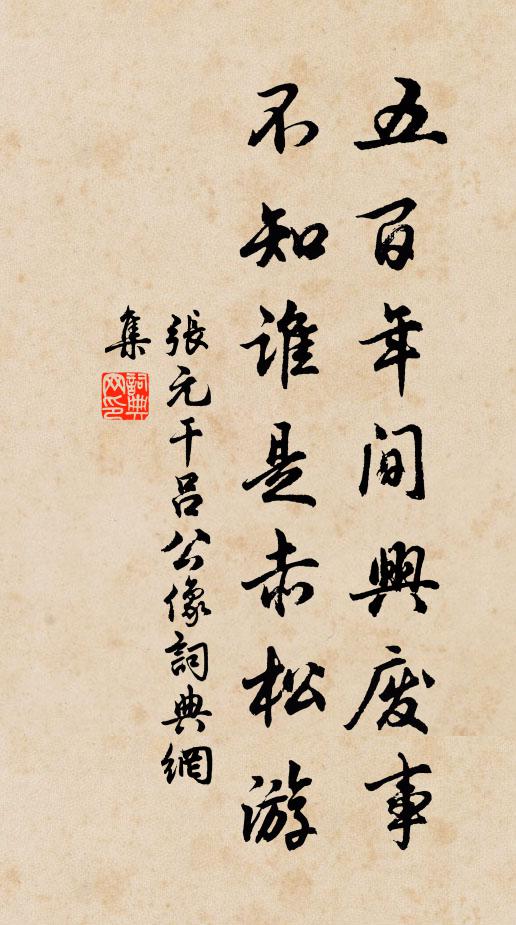 五百年間興废事
不知谁是赤松游
張元干吕公像詞典網
集
詞典
网印